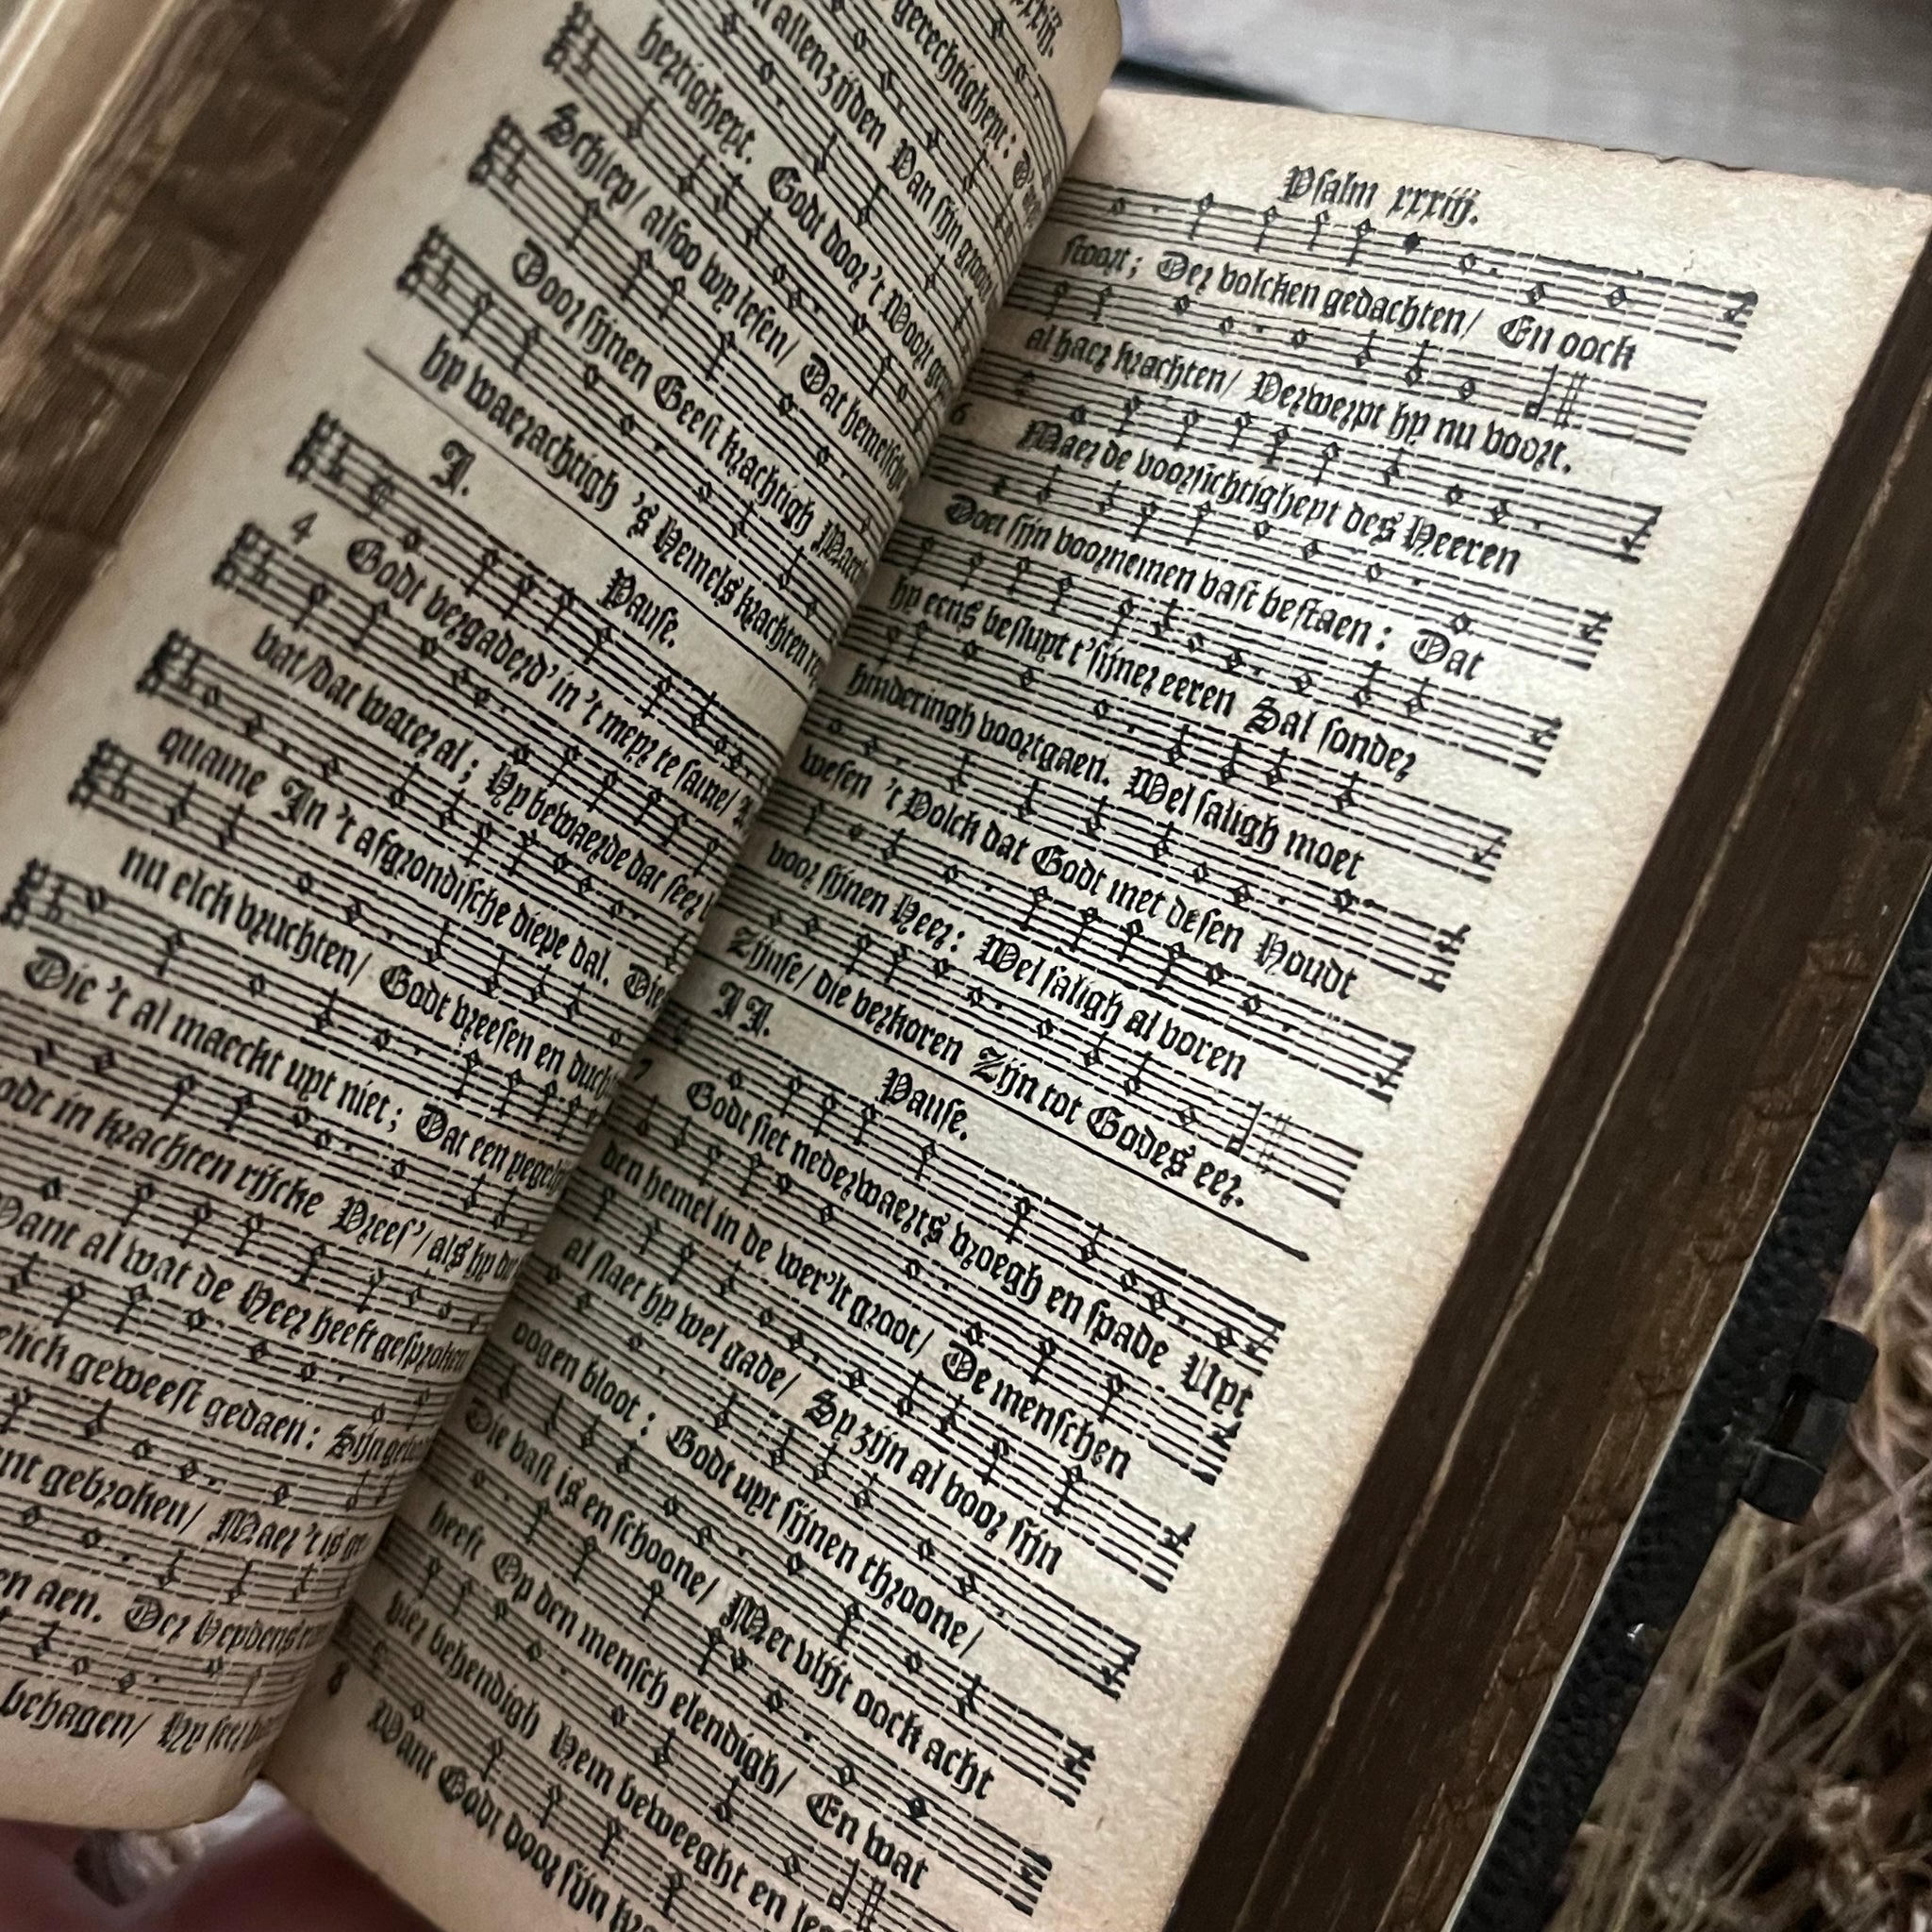 xxxiij.
gerechtigheyt:
allen zijden Van sijn
hertigheyt. Godt door 't Woort
Schiep/ alsoo wy lesen/ Dat hemelsche
Door sijnen Geest krachtigh
hy waerachtigh 's Hemels krachten
I. Pause.
4 Godt vergaderd' in 't meyr te same/
vat/dat water al; Hy bewaerde dat seer
quame In 't afgrondische diepe dal. Die
nu elck vruchten/ Godt vreesen en
Die 't al maeckt uyt niet; Dat een
in krachten rijcke Vrees'/ als hy
Want al wat de Heer heeft gesproken
geweest gedaen: Sijn
gebroken/ Maer 't is
aen. Der Heydens
behagen/ Hy
Psalm xxxiij.
stoort; Der volcken gedachten/ En oock
al haer krachten/ Verwerpt hy nu voort.
6 Maer de voorsichtigheyt des Heeren
Doet sijn voornemen vast bestaen: Dat
hy eens besluyt t'sijner eeren Sal sonder
hinderingh voortgaen. Wel saligh moet
wesen 't Volck dat Godt met desen Houdt
voor sijnen Heer: Wel saligh al voren
Zijnse/ die verkoren Zijn tot Godes eer.
II. Pause.
7 Godt siet nederwaerts vroegh en spade Uyt
den hemel in de wer'lt groot/ De menschen
al slaet hy wel gade/ Sy zijn al voor sijn
oogen bloot: Godt uyt sijnen throone/
Die vast is en schoone/ Met vlijt oock acht
heeft Op den mensch elendigh/ En wat
hier behendigh Hem beweeght en
8 Want Godt door sijn